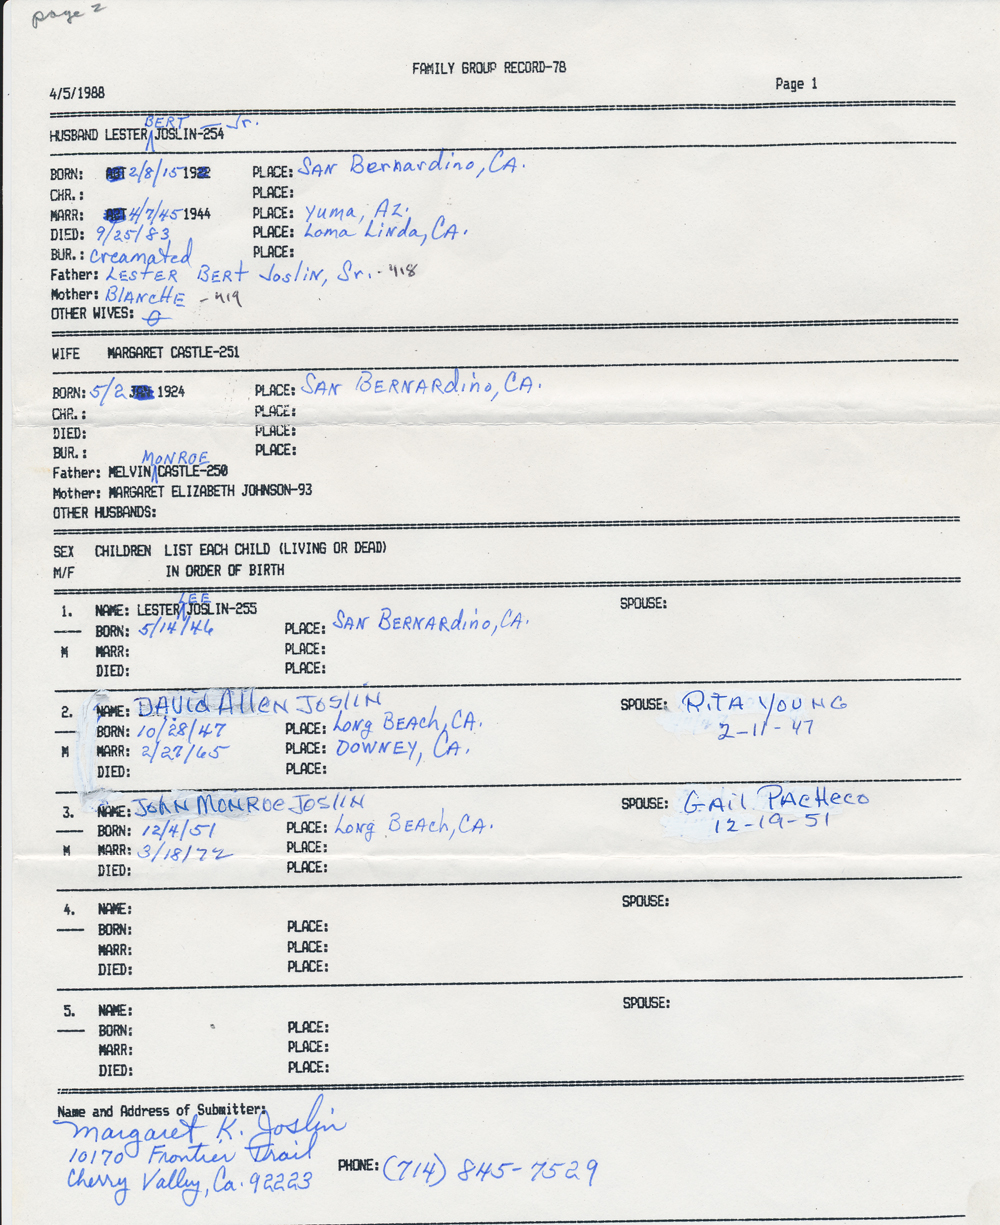 page 2
FAMILY GROUP RECORD-78
4/5/1988 Page 1
BERT — Jr.
HUSBAND LESTER JOSLIN-254
BORN: 2/8/15 1922 PLACE: San Bernardino, CA.
CHR.: PLACE:
MARR: 4/7/45 1944 PLACE: Yuma, AZ.
DIED: 9/25/83 PLACE: Loma Linda, CA.
BUR.: Creamated PLACE:
Father: LESTER BERT Joslin, Sr. - 418
Mother: BLANCHE - 419
OTHER WIVES: 0
WIFE MARGARET CASTLE-251
BORN: 5/2 1924 PLACE: SAN BERNARDINO, CA.
CHR.: PLACE:
DIED: PLACE:
BUR.: PLACE:
MONROE
Father: MELVIN CASTLE-250
Mother: MARGARET ELIZABETH JOHNSON-93
OTHER HUSBANDS:
SEX CHILDREN LIST EACH CHILD (LIVING OR DEAD)
M/F IN ORDER OF BIRTH
LEE
1. NAME: LESTER JOSLIN-255 SPOUSE:
BORN: 5/14/46 PLACE: SAN BERNARDINO, CA.
M MARR: PLACE:
DIED: PLACE:
2. NAME: DAVID ALLEN JOSLIN SPOUSE: RITA YOUNG
BORN: 10/28/47 PLACE: Long BEACH, CA. 2-11-47
M MARR: 2/27/65 PLACE: DOWNEY, CA.
DIED: PLACE:
3. NAME: JOHN MONROE JOSLIN SPOUSE: GAIL PACHECO
BORN: 12/4/51 PLACE: Long BEACH, CA. 12-19-51
M MARR: 3/18/72 PLACE:
DIED: PLACE:
4. NAME: SPOUSE:
BORN: PLACE:
MARR: PLACE:
DIED: PLACE:
5. NAME: SPOUSE:
BORN: PLACE:
MARR: PLACE:
DIED: PLACE:
Name and Address of Submitter:
Margaret K. Joslin
10170 Frontier Trail
Cherry Valley, Ca. 92223 PHONE: (714) 845-7529